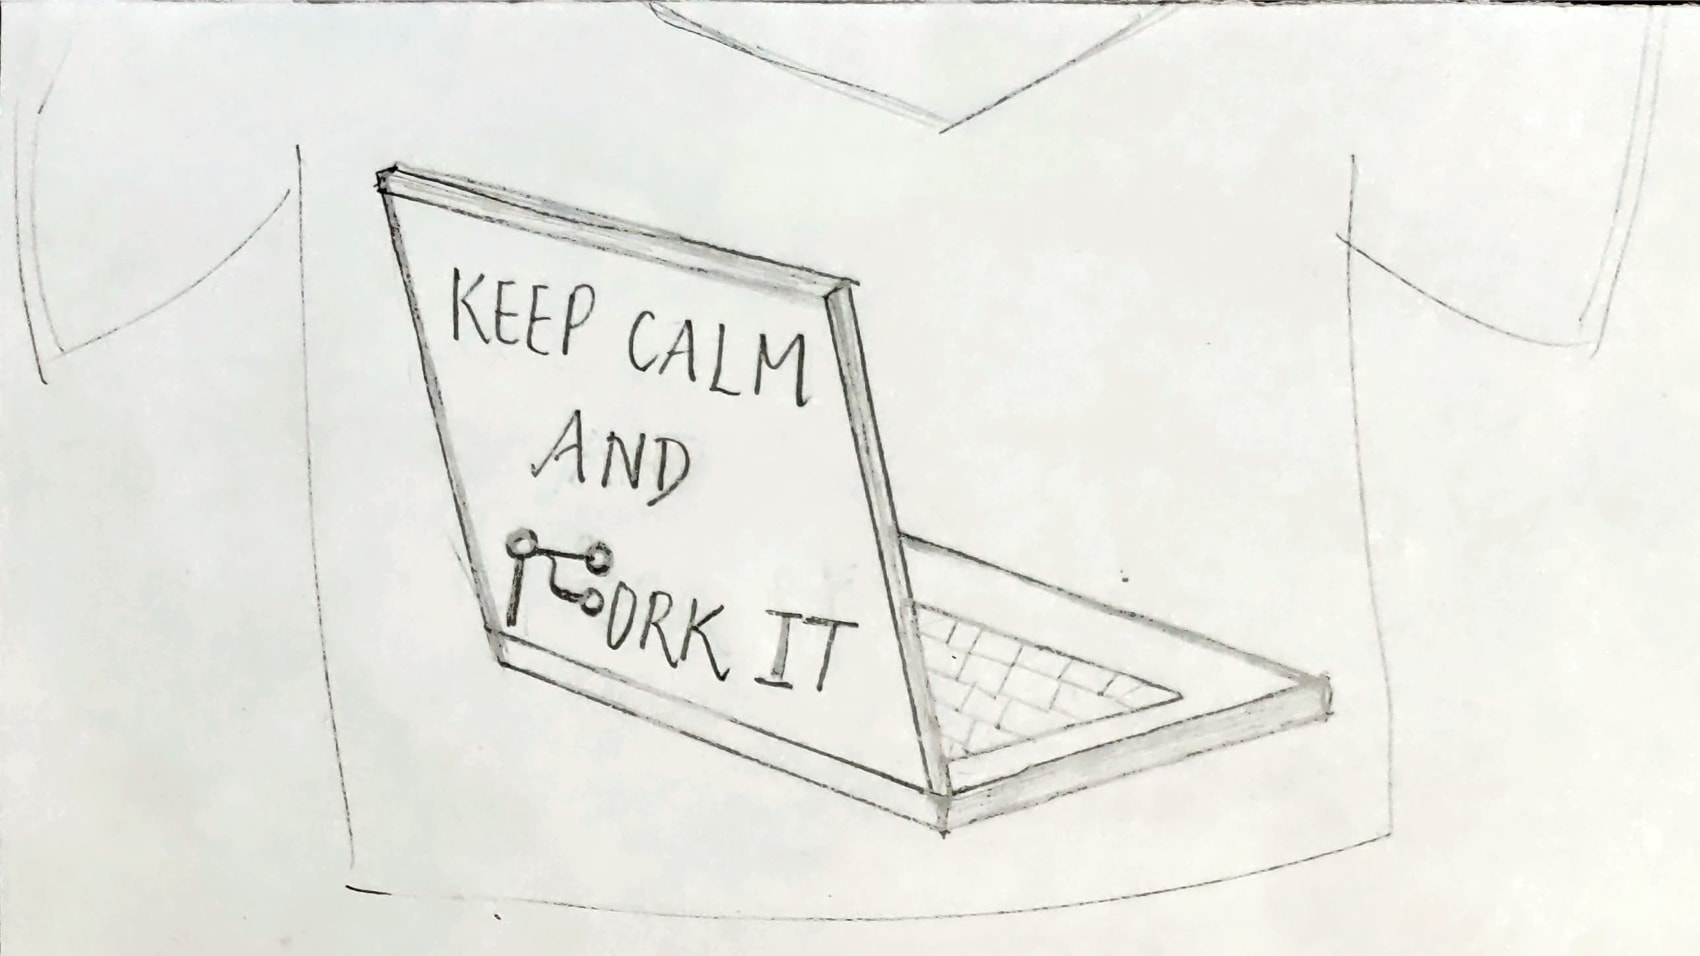 KEEP CALM
AND
FORK IT